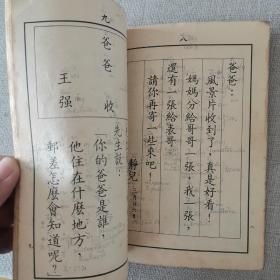 八
爸爸：
風景片收到了！真是好看！
媽媽分給哥哥一張，我一張，
還有一張給表哥。
請你再寄一些來吧！
靜兒
九
爸爸 收
王强
先生說：
「你的爸爸是誰，
他住在什麽地方，
郵差怎麽會知道呢？」